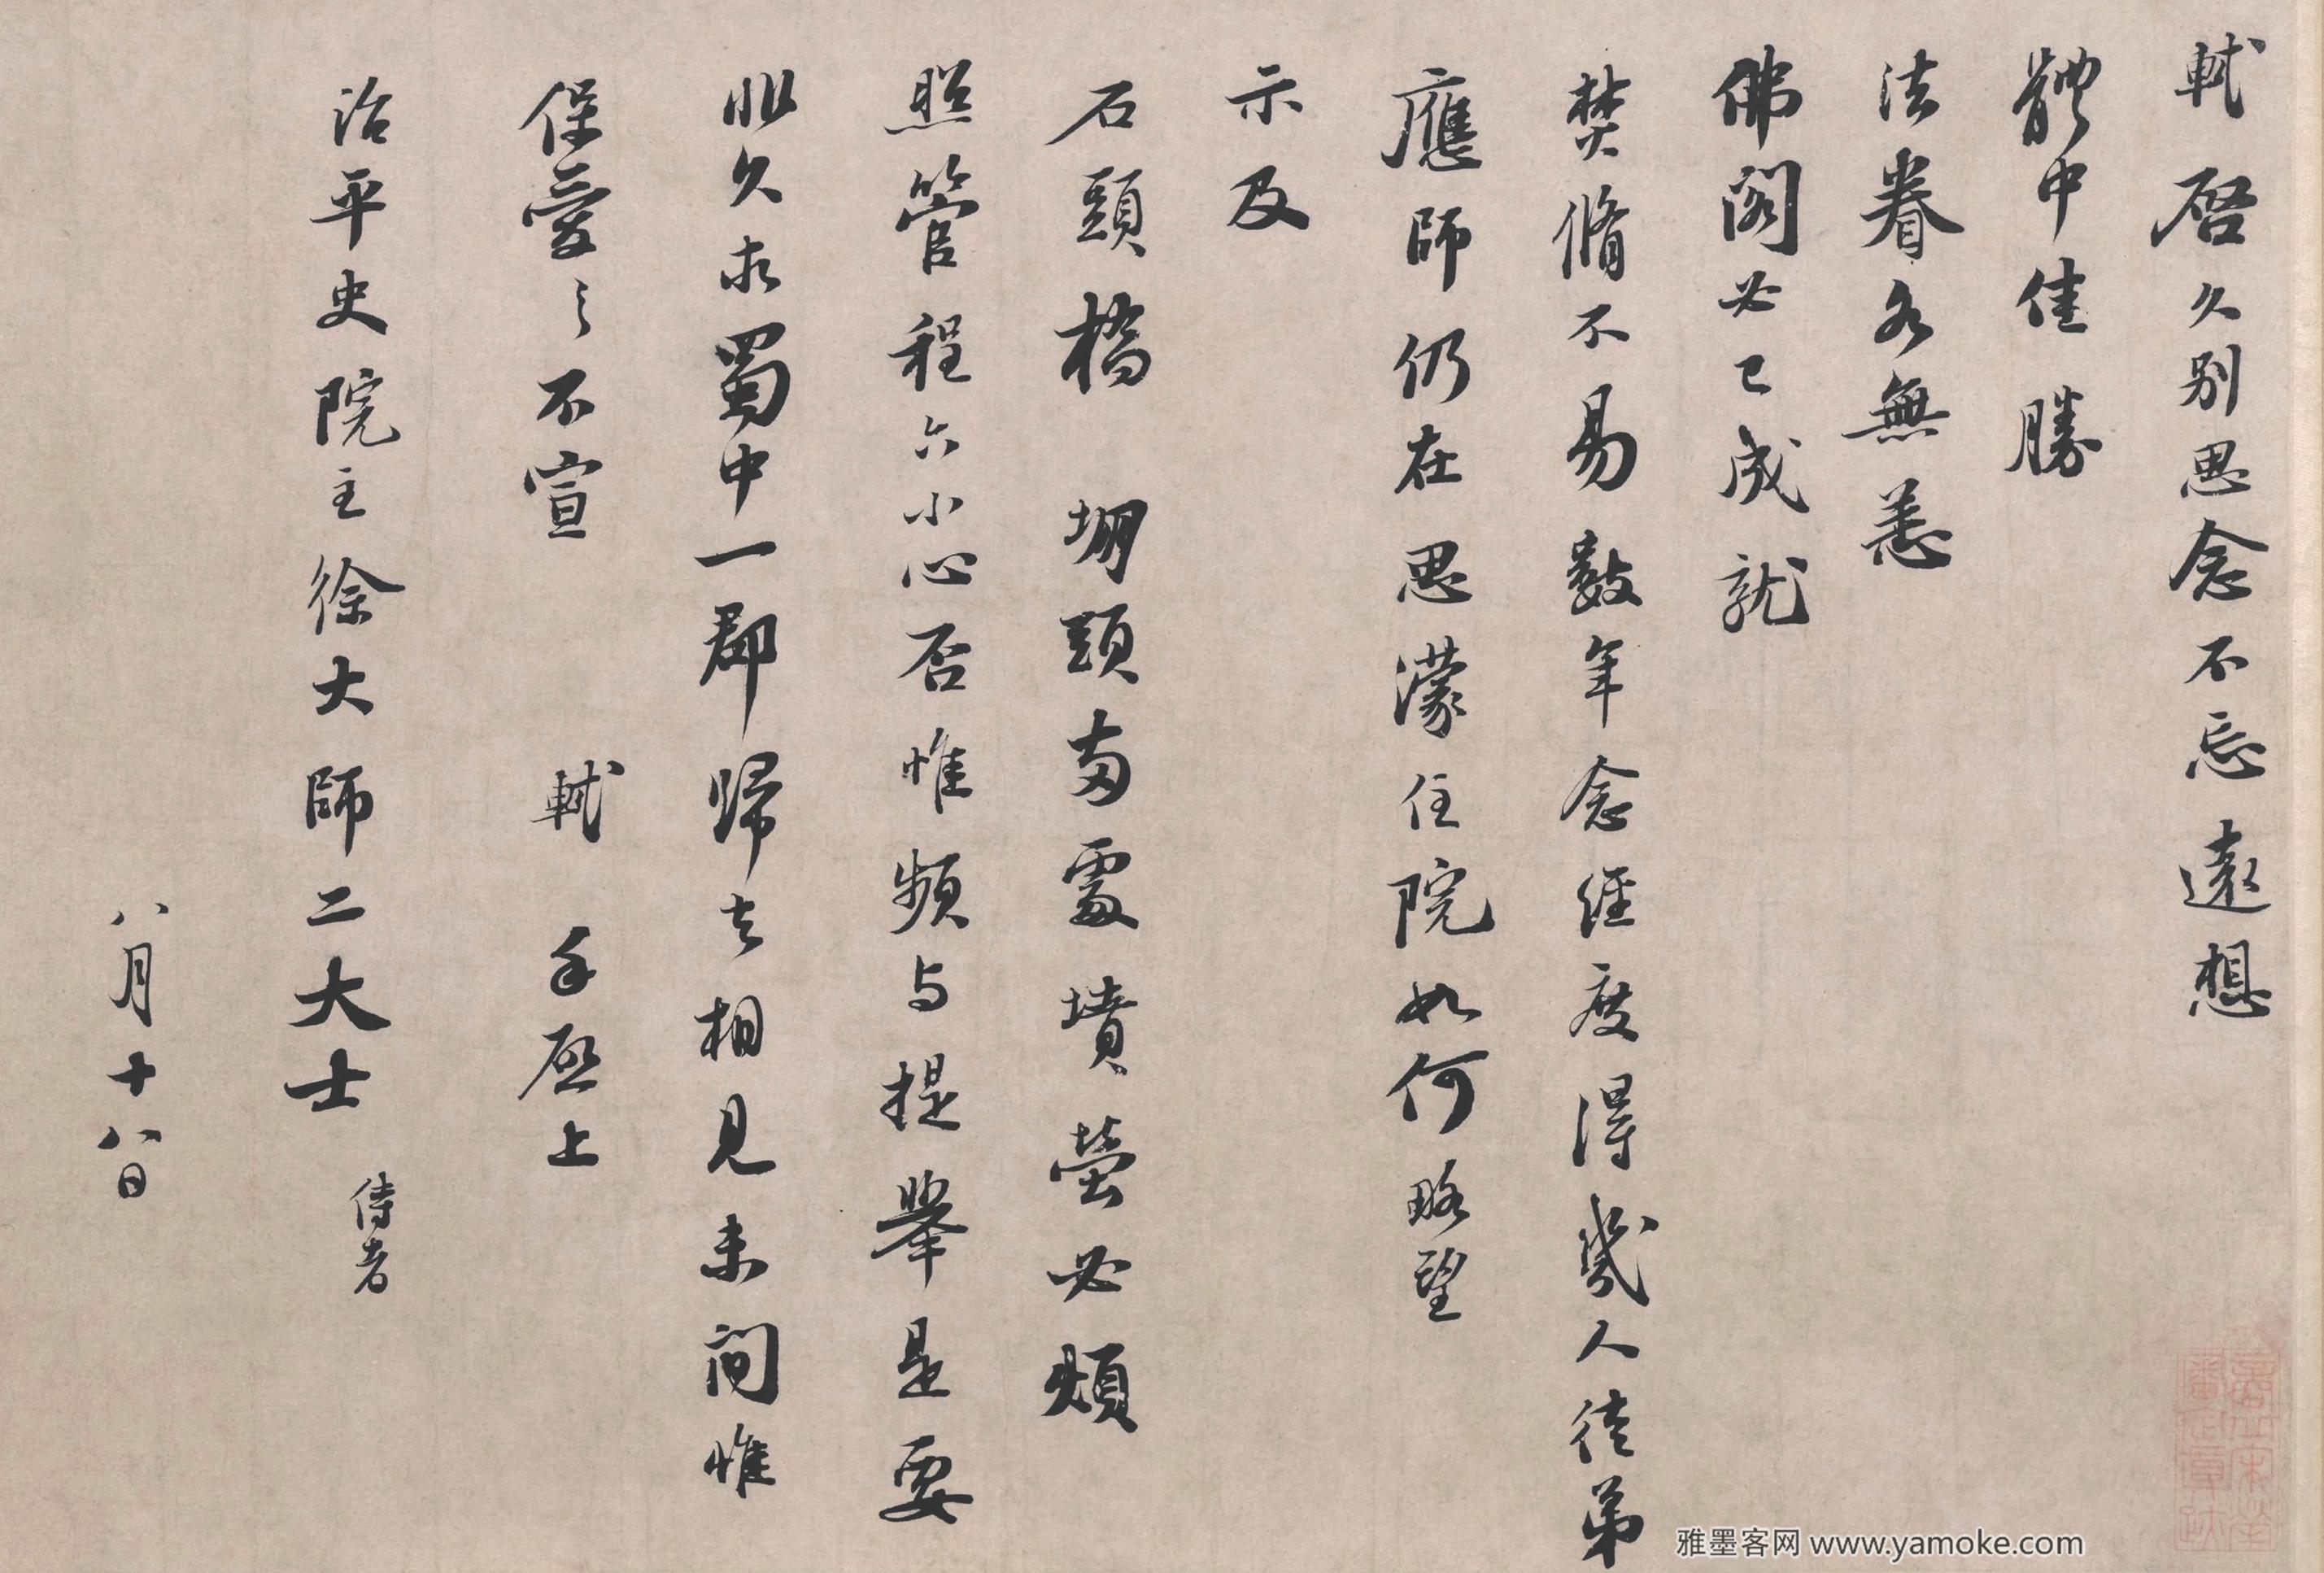 軾啓久別思念不忘遠想
體中佳勝
法眷各無恙
佛閣必已成就
焚脩不易數年念經度得幾人徒弟
應師仍在思濛住院如何略望
示及
石頭橋 堋頭兩處墳塋必煩
照管程六小心否惟頻与提舉是要
非久求蜀中一郡歸去相見未間惟
保愛之不宣 軾 手啓上
治平史院主徐大師二大士 侍者
八月十八日
雅墨客网 www.yamoke.com